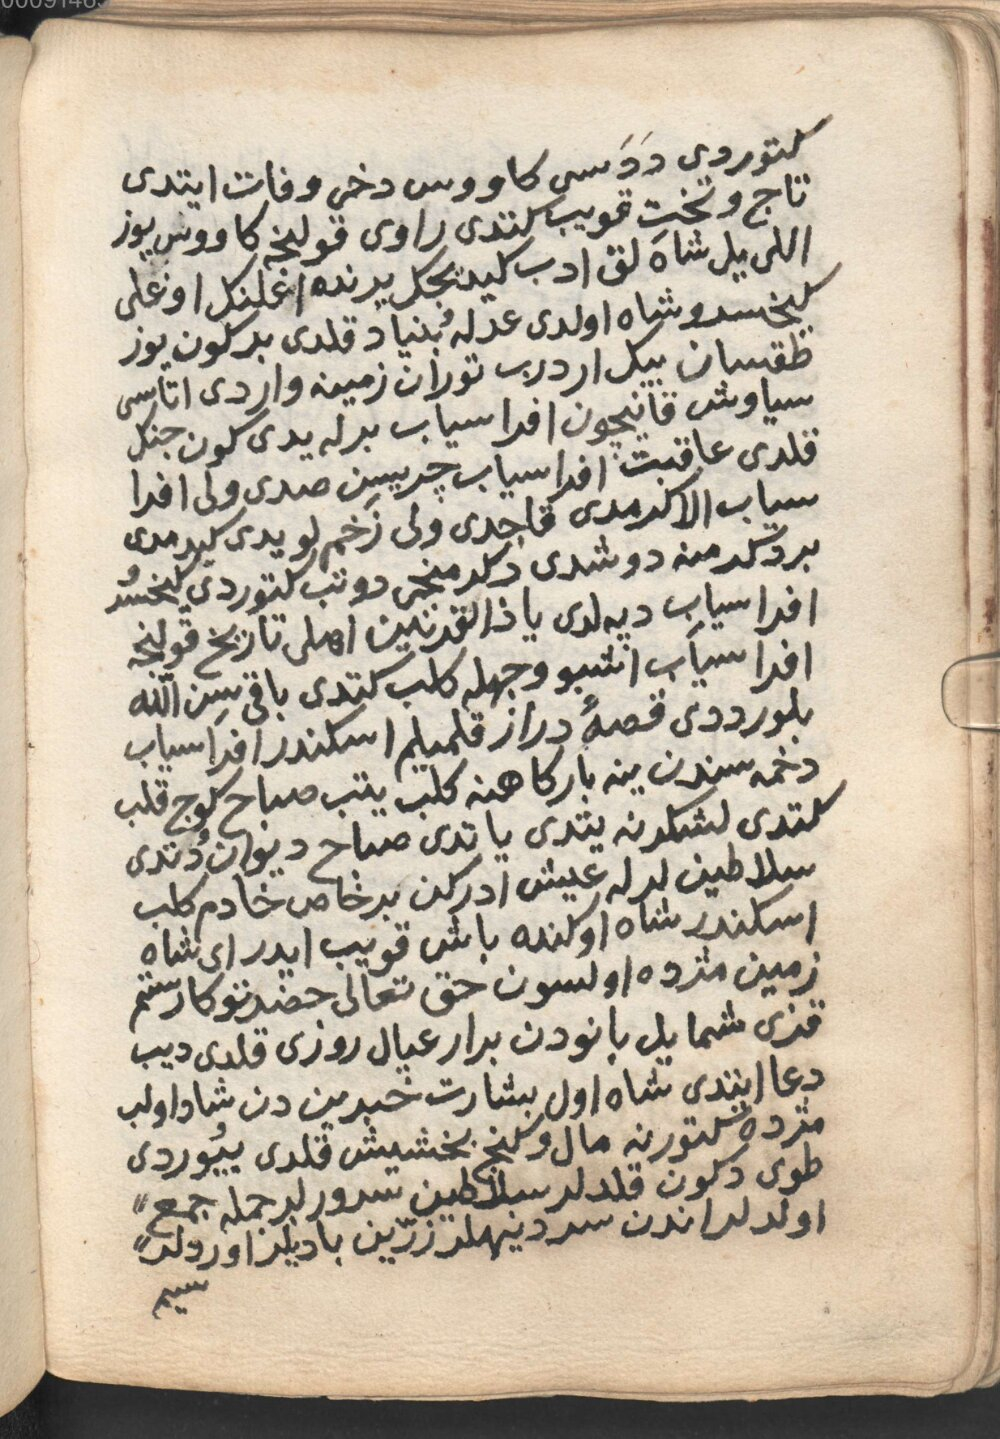 كتوردی دَدَسی كاووس دخی وفات ایتدی
تاج و تخت قویب كتدی راوی قولنجه كاووس یوز
اللی یل شاه لق ادب كیدیجك یرنده اغلنك اوغلی
كیخسرو شاه اولدی عدله بُنیاد قلدی بر كون یوز
طقسان بیك ار درب توران زمینه واردی اتاسی
سیاوش قانیچون افراسیاب برله یدی كون جنك
قلدی عاقبت افراسیاب چریسن صدی ولی افرا
سیاب الا كرمدی قاچدی ولی زخم لو یدی كیدرمدی
بر دكرمنه دوشدی دكرمنجی دوتب كتوردی كیخسرو
افراسیاب دپه لدی یا ذا القرنین اهلی تاریخ قولنجه
افراسیاب اشبو وجهله كلب كتدی باقی سِن الله
بلور ددی قصهٔ دراز قلمیلم اسكندر افراسیاب
دخمه سندن ینه باركاهنه كلب یتب صباح كوچ قلب
كتدی لشكرنه یتدی یاتدی صباح دیوان دُتدی
سلاطین لر له عیش ادركن بر خاص خادم كلب
اسكندر شاه اوكنده باش قویب ایدر ای شاه
زمین مژده اولسون حق تعالی حضرتو كا رستم
قزی شمایل بانودن بر ار عیال روزی قلدی دیب
دعا ایتدی شاه اول بشارت خبرین دن شاد اولب
مژده كتورنه مال و كنج بخشیش قلدی بیُوردی
طوی دكون قلدلر سلاطین سرورلر جمله جمع
اولدلر اندن سر دینهلر زرّین بادیلر اورولر
سیم